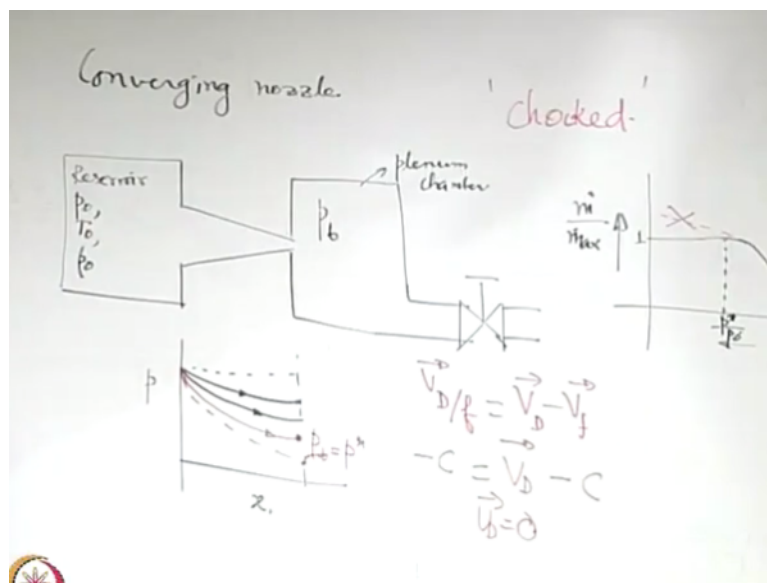 Converging nozzle
'Chocked'
Reservoir
p₀,
T₀,
ρ₀
plenum
chamber
p_b
ṁ
ṁ_max
1
p*
p₀
p
p_b = p*
x
V⃗_D/f = V⃗_D − V⃗_f
−C = V⃗_D − C
V⃗_D = 0